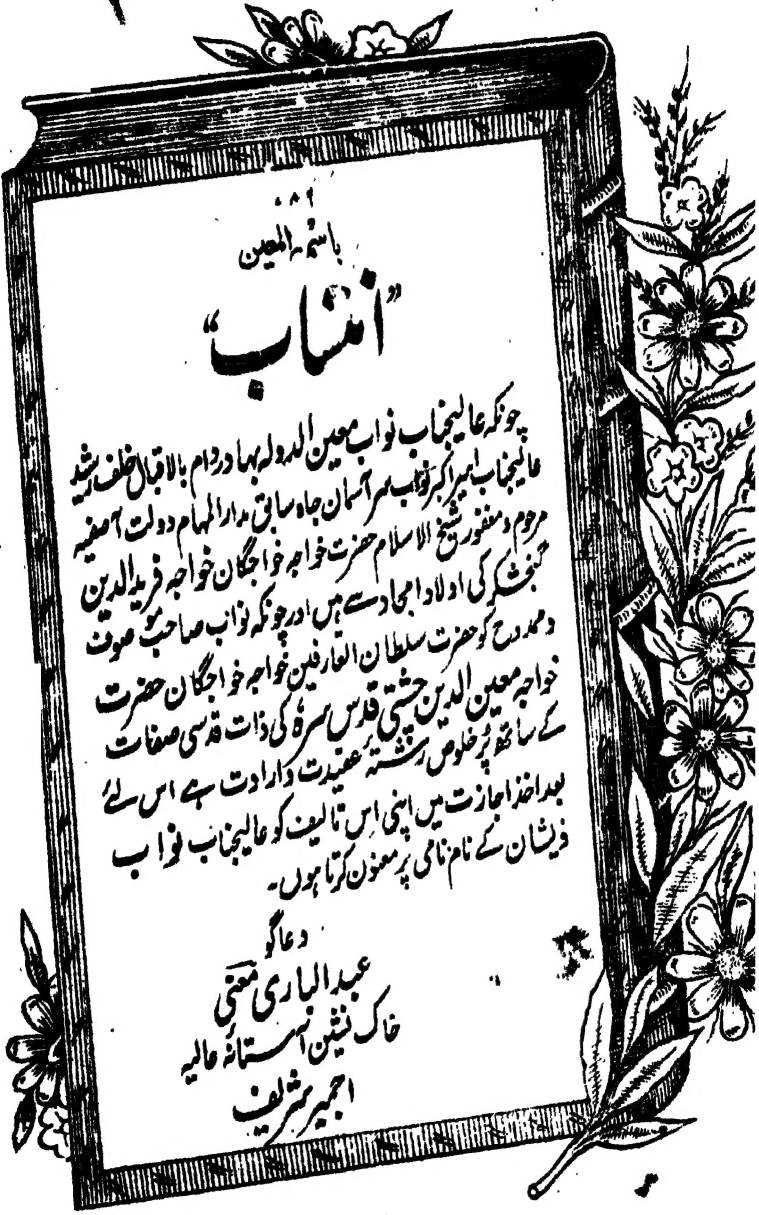 ۷۸۶
باسمہ المعین
”انتساب“
چونکہ عالیجناب نواب معین الدولہ بہادر دام بالاقبال خلف رشید
عالیجناب امیر اکبر نواب سر آسمان جاہ سابق مدارالمہام دولت آصفیہ
مرحوم و مغفور شیخ الاسلام حضرت خواجہ خواجگان خواجہ فریدالدین
گنجشکر کی اولاد امجاد سے ہیں اور چونکہ نواب صاحب موصوف
و ممدوح کو حضرت سلطان العارفین خواجہ خواجگان حضرت
خواجہ معین الدین چشتی قدس سرہٗ کی ذات قدسی صفات
کے ساتھ پُر خلوص رشتۂ عقیدت و ارادت ہے اس لئے
بعد اخذ اجازت میں اپنی اِس تالیف کو عالیجناب نواب
ذیشان کے نام نامی پر معنون کرتا ہوں۔
دعاگو
عبدالباری معنی
خاک نشین آستانۂ عالیہ
اجمیر شریف